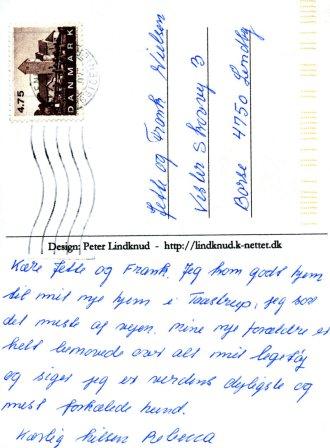 4.75
DANMARK
Jette og Frank Nielsen
Vester Skovvej 3
Borse 4750 Lundby
Design: Peter Lindknud - http://lindknud.k-netter.dk
Kære Jette og Frank. Jeg kom godt hjem
til mit nye hjem i Taastrup, jeg sov
det meste af vejen. mine nye forældre er
helt benovede over alt mit legetøj
og siger jeg er verdens dejligste og
mest forkælede hund.
Kærlig hilsen Rebecca